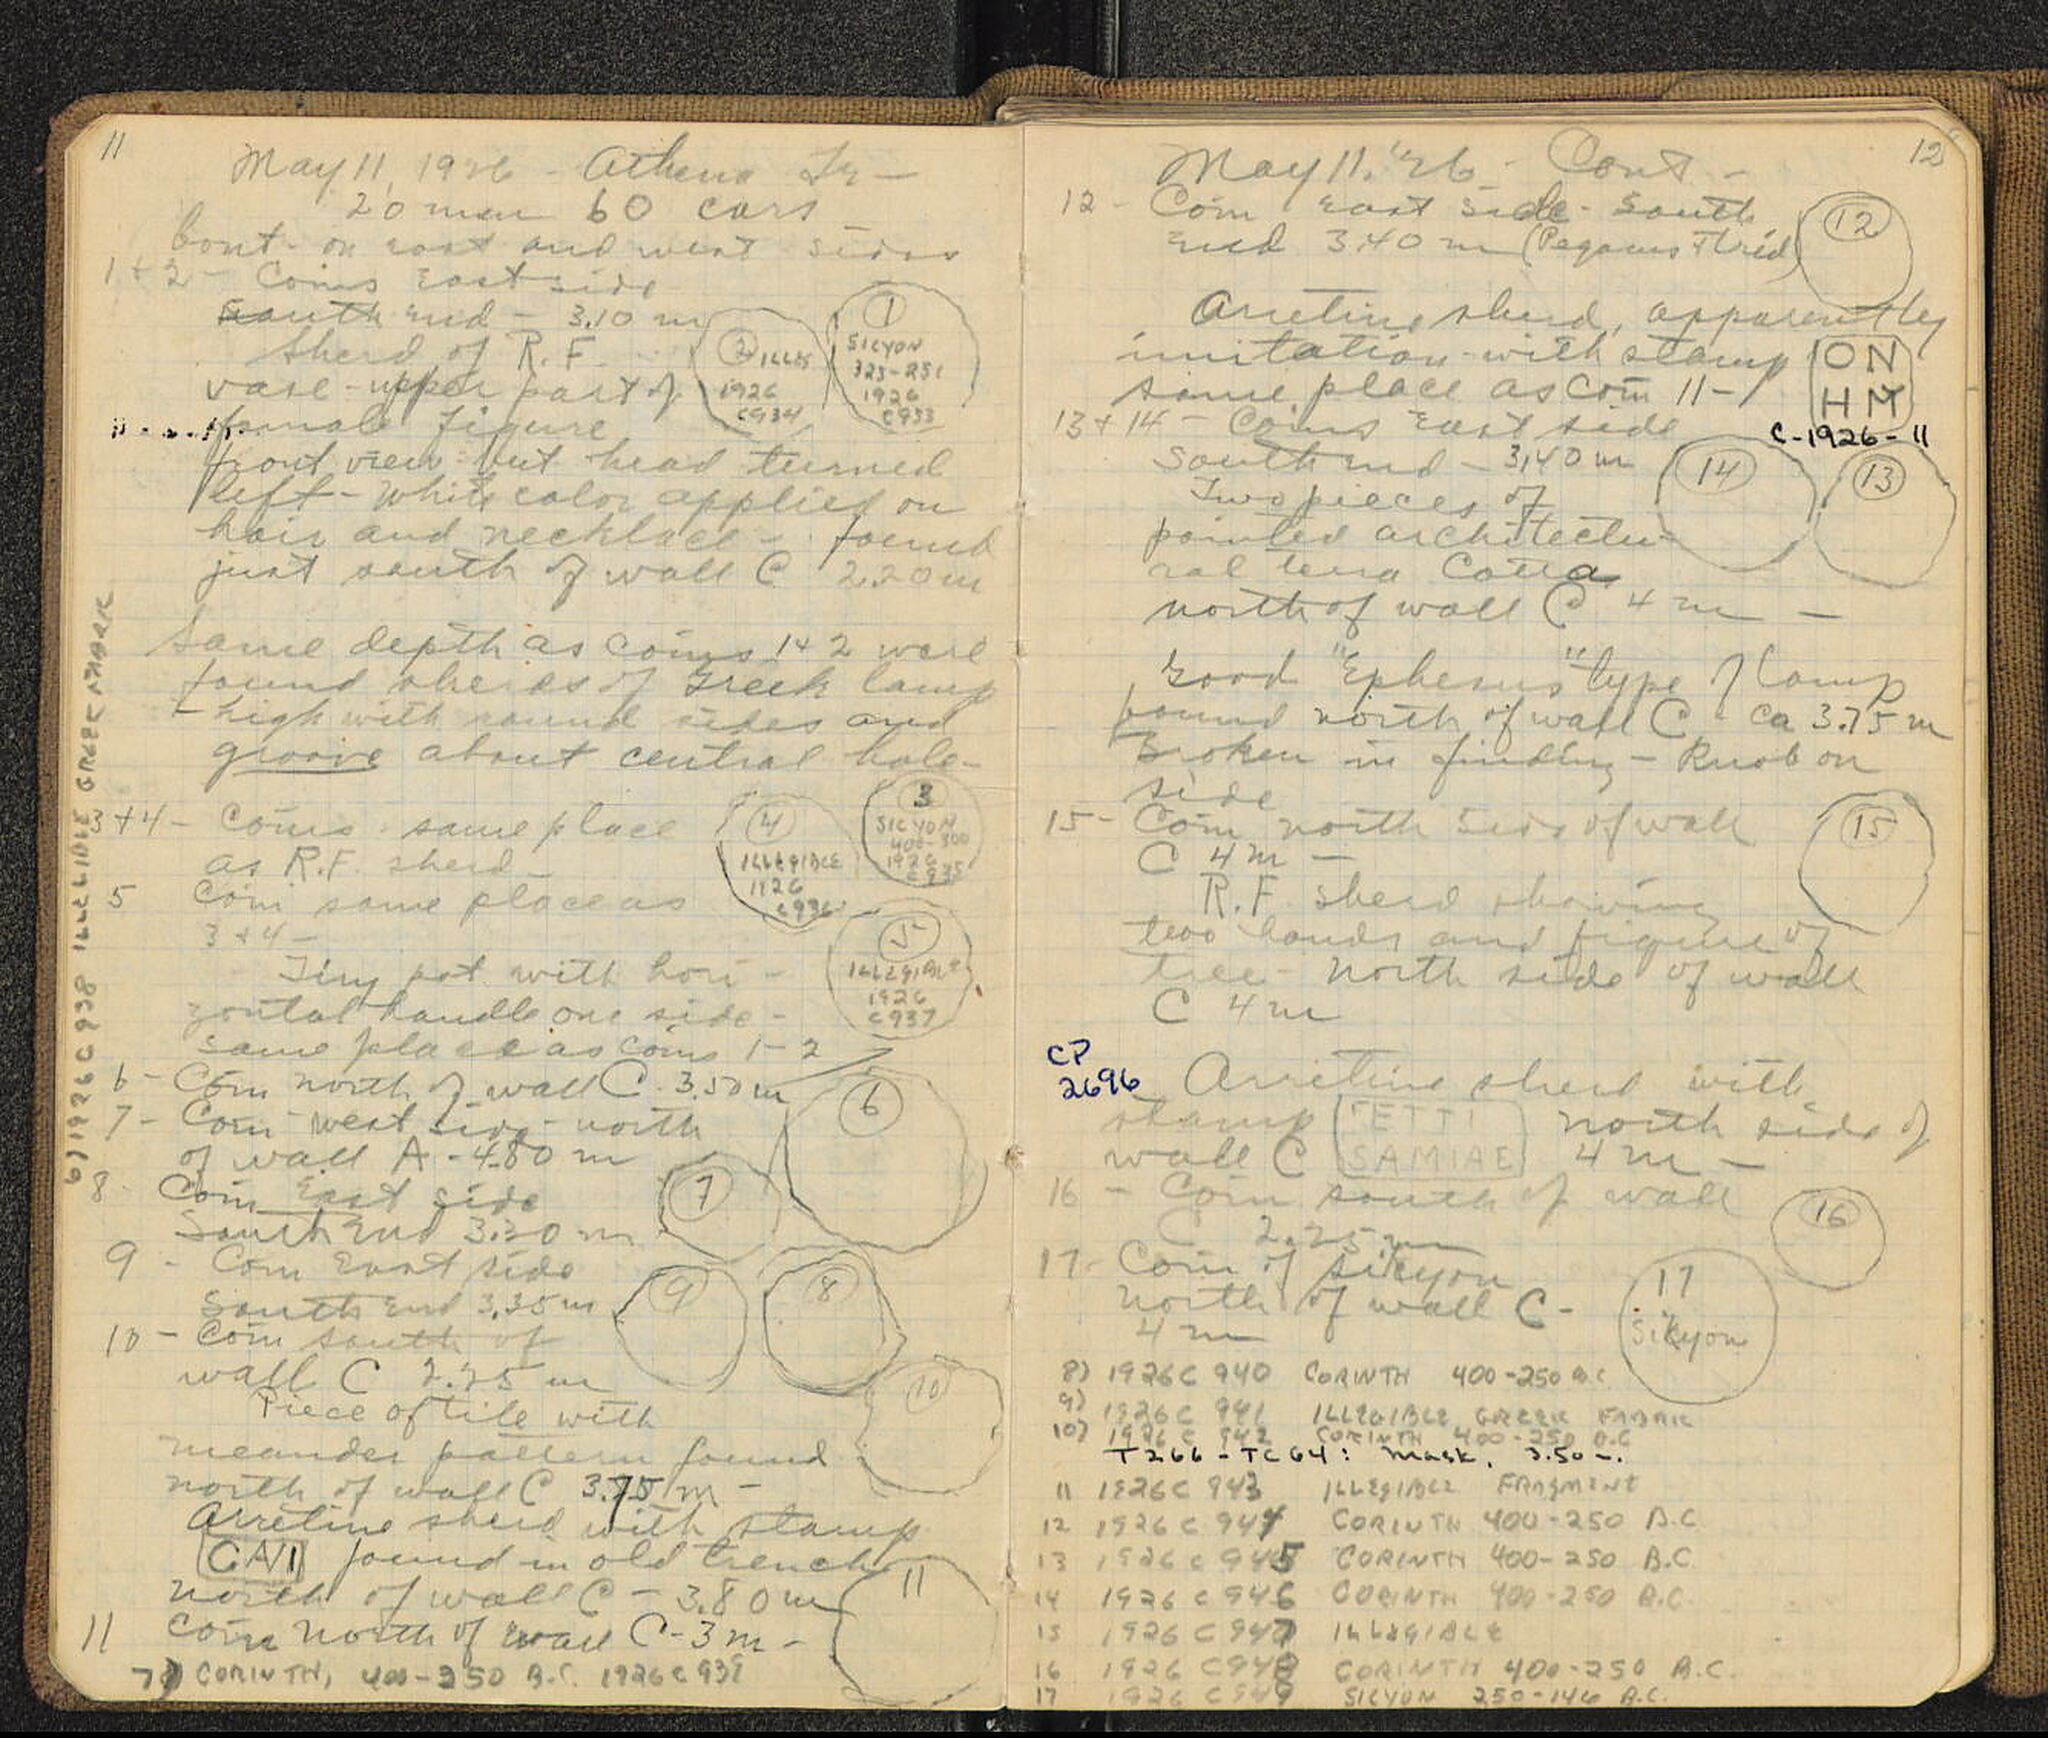 11
May 11, 1926 - Athena Tr -
20 men 60 cars
Cont - on east and west sides
1 + 2 - Coins east side
south end - 3.10 m
① SICYON 323-251 1926 C933
② ILLEG 1926 C934
Sherd of R.F.
vase - upper part of
female figure
front view but head turned
left - White color applied on
hair and necklace - found
just south of wall C 2.20 m
Same depth as coins 1 + 2 were
found sherds of Greek lamp
- high with round sides and
groove about central hole -
3 + 4 - Coins - same place
as R.F. sherd -
3 SICYON 400-300 1926 C935
④ ILLEGIBLE 1926 C936
5 Coin same place as
3 + 4 -
⑤ ILLEGIBLE 1926 C937
Tiny pot with hori-
zontal handle one side -
same place as coins 1 - 2
6 - Coin north of wall C. 3.50 m
⑥
7 - Coin west side - north
of wall A - 4.80 m
⑦
8 - Coin East side
South End 3.30 m
⑧
9 - Coin East side
South End 3.35 m
⑨
10 - Coin south of
wall C 2.25 m
⑩
Piece of tile with
meander pattern found
north of wall C 3.75 m -
Arretine sherd with stamp
CAVI found in old trench
north of wall C - 3.80 m
11 Coin North of wall C - 3 m -
11
7) CORINTH, 400-250 B.C. 1926 C 939
6) 1926 C 938 ILLEGIBLE GREEK FABRIK
12
May 11, '26 - Cont -
12 - Coin east side - South
end 3.40 m (Pegasus + Trid)
⑫
Arretine sherd, apparently
imitation - with stamp
ON
HM
same place as coin 11 -
C-1926-11
13 + 14 - Coins East side
South end - 3.40 m
⑭ ⑬
Two pieces of
painted architectu-
ral terra cotta
north of wall C 4 m -
Good "Ephesus" type of lamp
found north of wall C - ca 3.75 m
Broken in finding - Knob on
side
15 - Coin north side of wall
C 4 m -
⑮
R.F. sherd showing
two hands and figure of
tree - North side of wall
C 4 m
CP
2696
Arretine sherd with
stamp TETTI SAMIAE north side of
wall C 4 m -
16 - Coin south of wall
C 2.25 m
⑯
17 - Coin of Sikyon
North of wall C -
4 m
17 Sikyon
8) 1926 C 940 CORINTH 400-250 B.C.
9) 1926 C 941 ILLEGIBLE GREEK FABRIK
10) 1926 C 942 CORINTH 400-250 B.C
T266 - TC64: Mask. 3.50-.
11 1926 C 943 ILLEGIBLE FRAGMENT
12 1926 C 944 CORINTH 400-250 B.C.
13 1926 C 945 CORINTH 400-250 B.C.
14 1926 C 946 CORINTH 400-250 B.C.
15 1926 C 947 ILLEGIBLE
16 1926 C 948 CORINTH 400-250 B.C.
17 1926 C 949 SICYON 250-146 B.C.